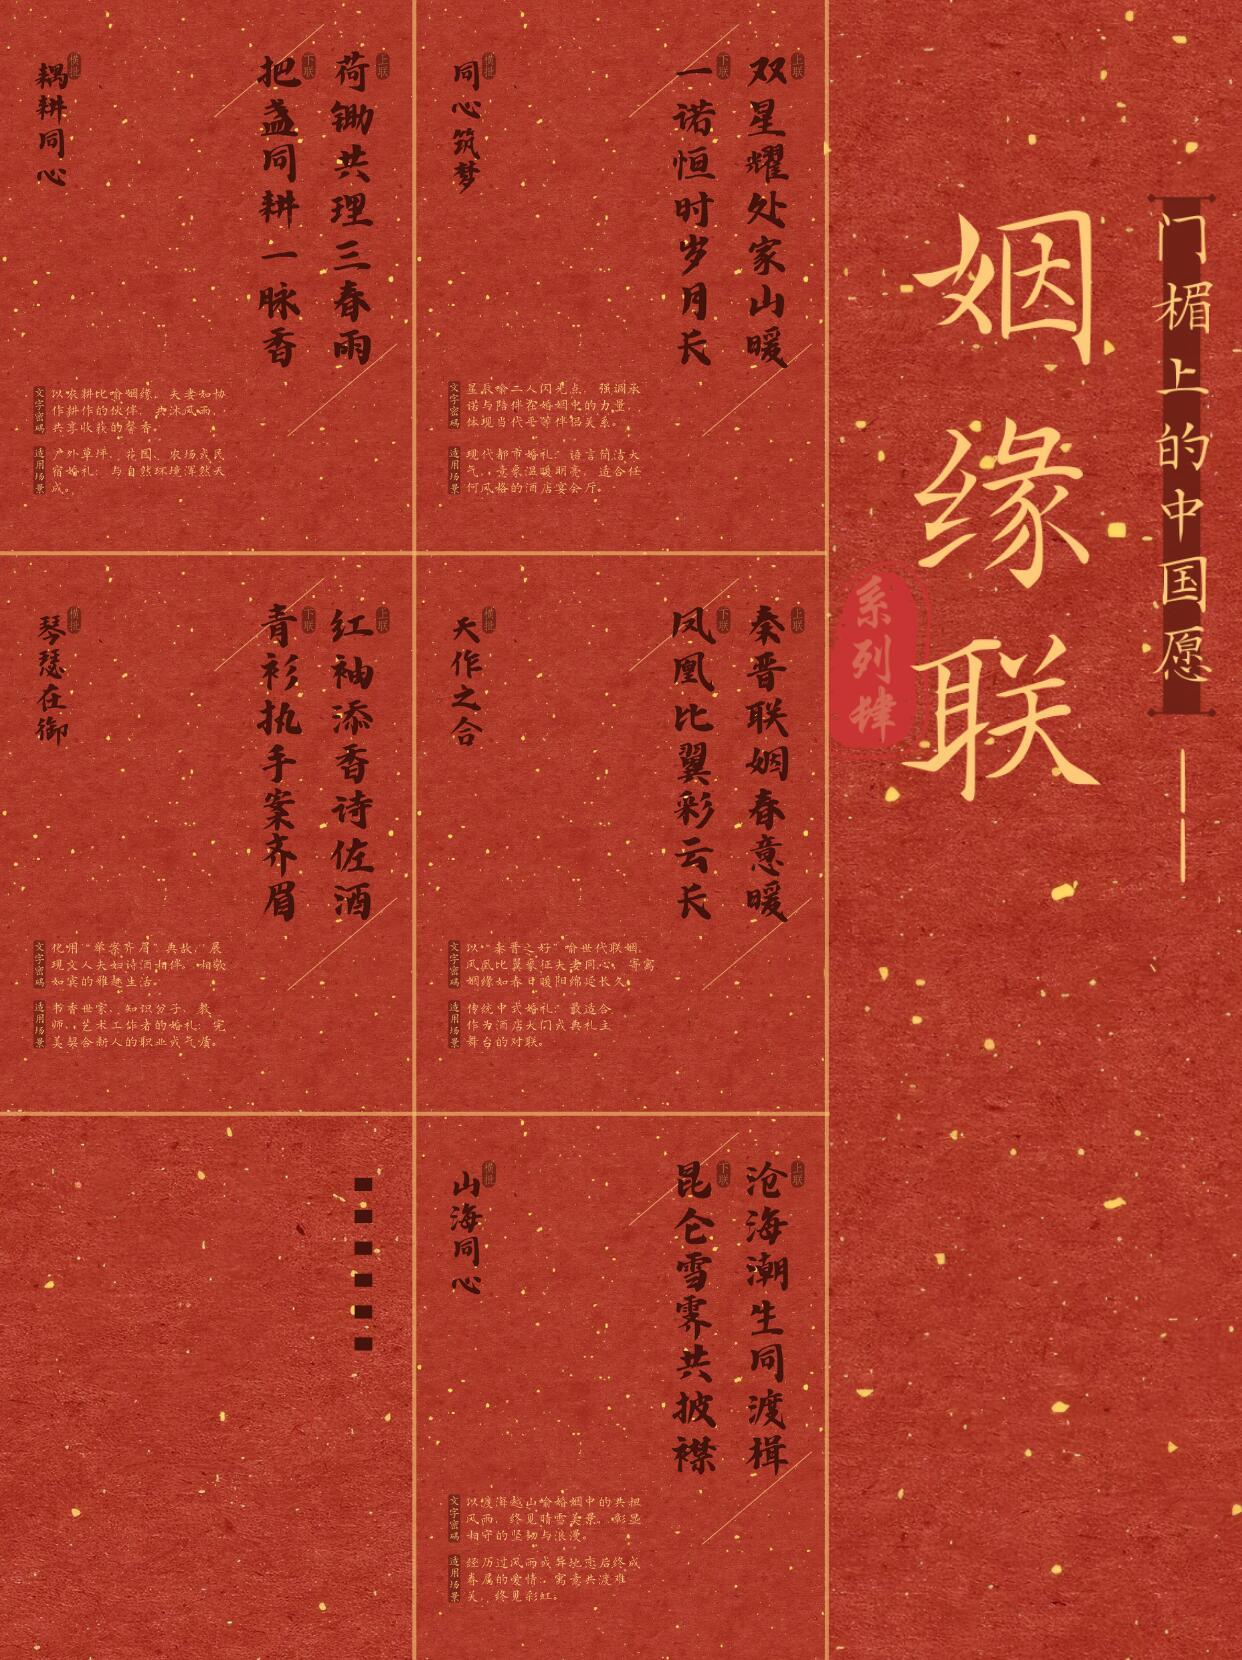 门楣上的中国愿——
姻缘联
系列肆
上联
双星耀处家山暖
下联
一诺恒时岁月长
横批
同心筑梦
文字密码
星辰喻二人闪光点，强调承
诺与陪伴在婚姻中的力量，
体现当代平等伴侣关系。
适用场景
现代都市婚礼：语言简洁大
气，意象温暖明亮，适合任
何风格的酒店宴会厅。
上联
荷锄共理三春雨
下联
把盏同耕一脉香
横批
耦耕同心
文字密码
以农耕比喻姻缘，夫妻如协
作耕作的伙伴，共沐风雨，
共享收获的馨香。
适用场景
户外草坪、花园、农场或民
宿婚礼：与自然环境浑然天
成。
上联
秦晋联姻春意暖
下联
凤凰比翼彩云长
横批
天作之合
文字密码
以“秦晋之好”喻世代联姻，
凤凰比翼象征夫妻同心，寄寓
姻缘如春日暖阳绵延长久。
适用场景
传统中式婚礼：最适合
作为酒店大门或典礼主
舞台的对联。
上联
红袖添香诗佐酒
下联
青衫执手案齐眉
横批
琴瑟在御
文字密码
化用“举案齐眉”典故，展
现文人夫妇诗酒相伴、相敬
如宾的雅趣生活。
适用场景
书香世家、知识分子、教
师、艺术工作者的婚礼：完
美契合新人的职业或气质。
上联
沧海潮生同渡楫
下联
昆仑雪霁共披襟
横批
山海同心
文字密码
以渡海越山喻婚姻中的共担
风雨，终见晴雪美景，彰显
相守的坚韧与浪漫。
适用场景
经历过风雨或异地恋后终成
眷属的爱情，寓意共渡难
关，终见彩虹。